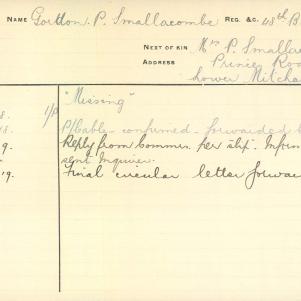 NAME Gordon. P. Smallacombe REG. &C. 48th B
NEXT OF KIN Mrs P. Smallac
ADDRESS Princes Roa
Lower Mitcha
"Missing"
8. 1/P
18. P/Cable - confirmed - forwarded
9. Reply from Commr. per slip. Inform
sent Inquirer.
19. Final circular letter forwa